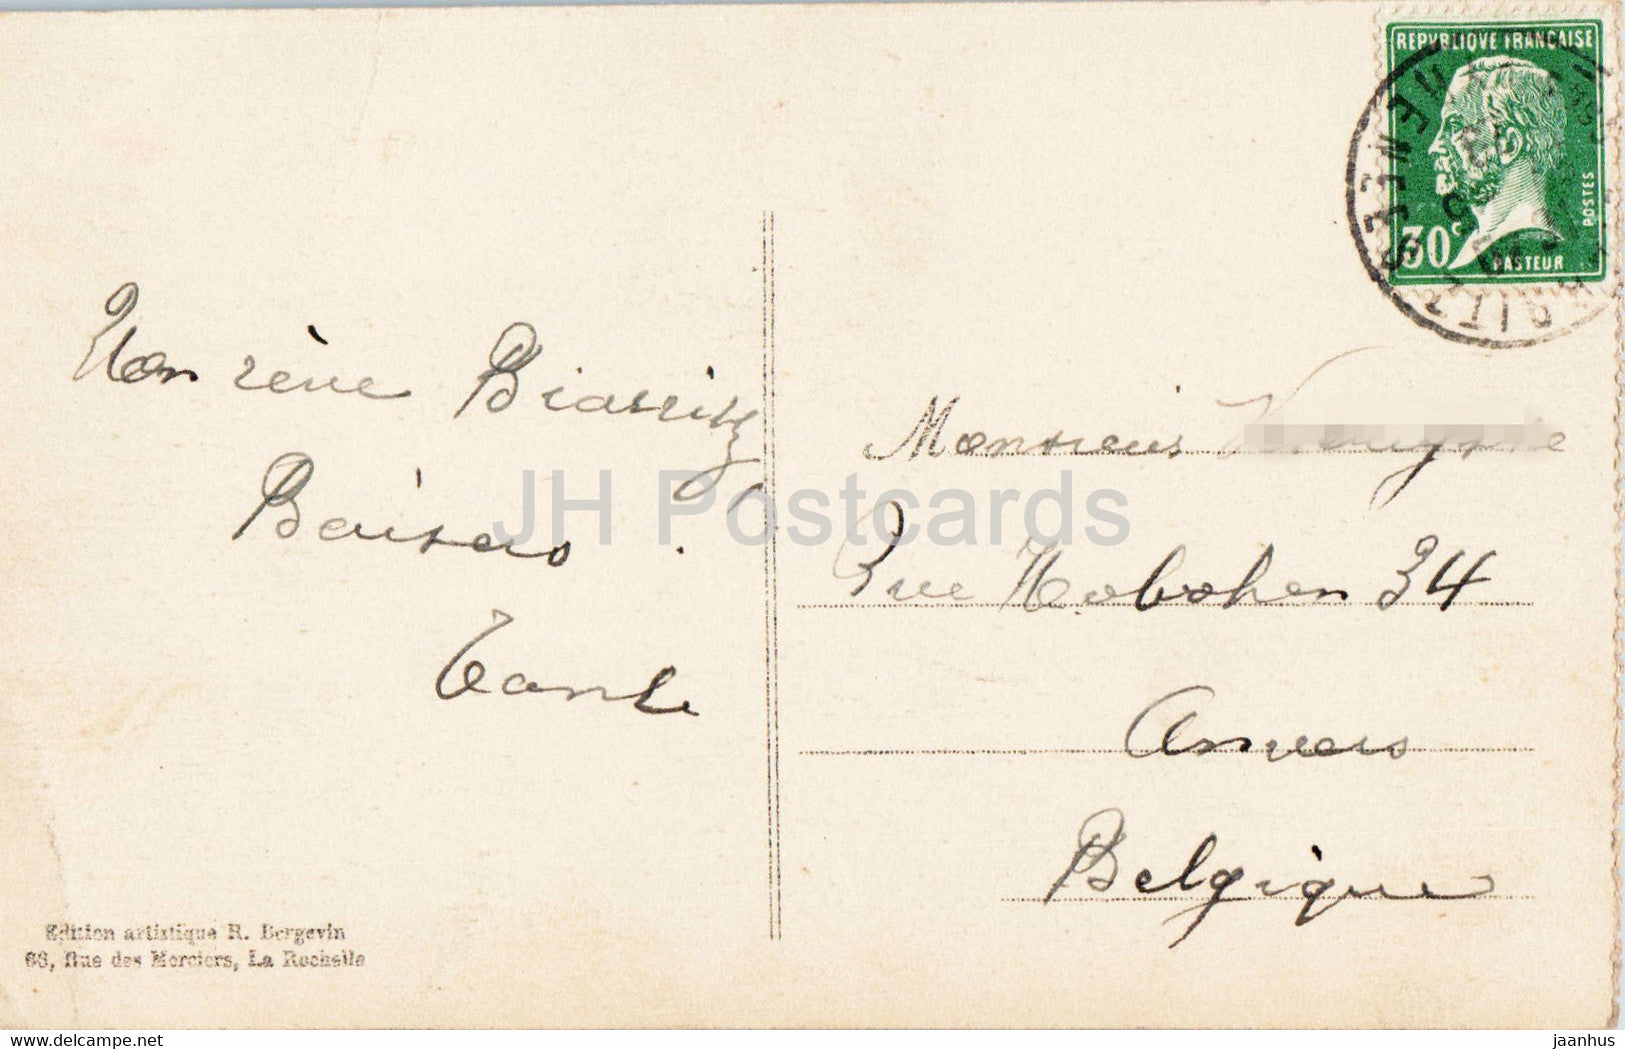 REPVBLIQVE FRANÇAISE
POSTES
30c
PASTEUR
Mon rêve Biarritz
Baisers
Tante
Monsieur
Rue Hoboken 34
Anvers
Belgique
JH Postcards
Edition artistique R. Bergevin
63, Rue des Merciers, La Rochelle
delcampe.net
jaanhus